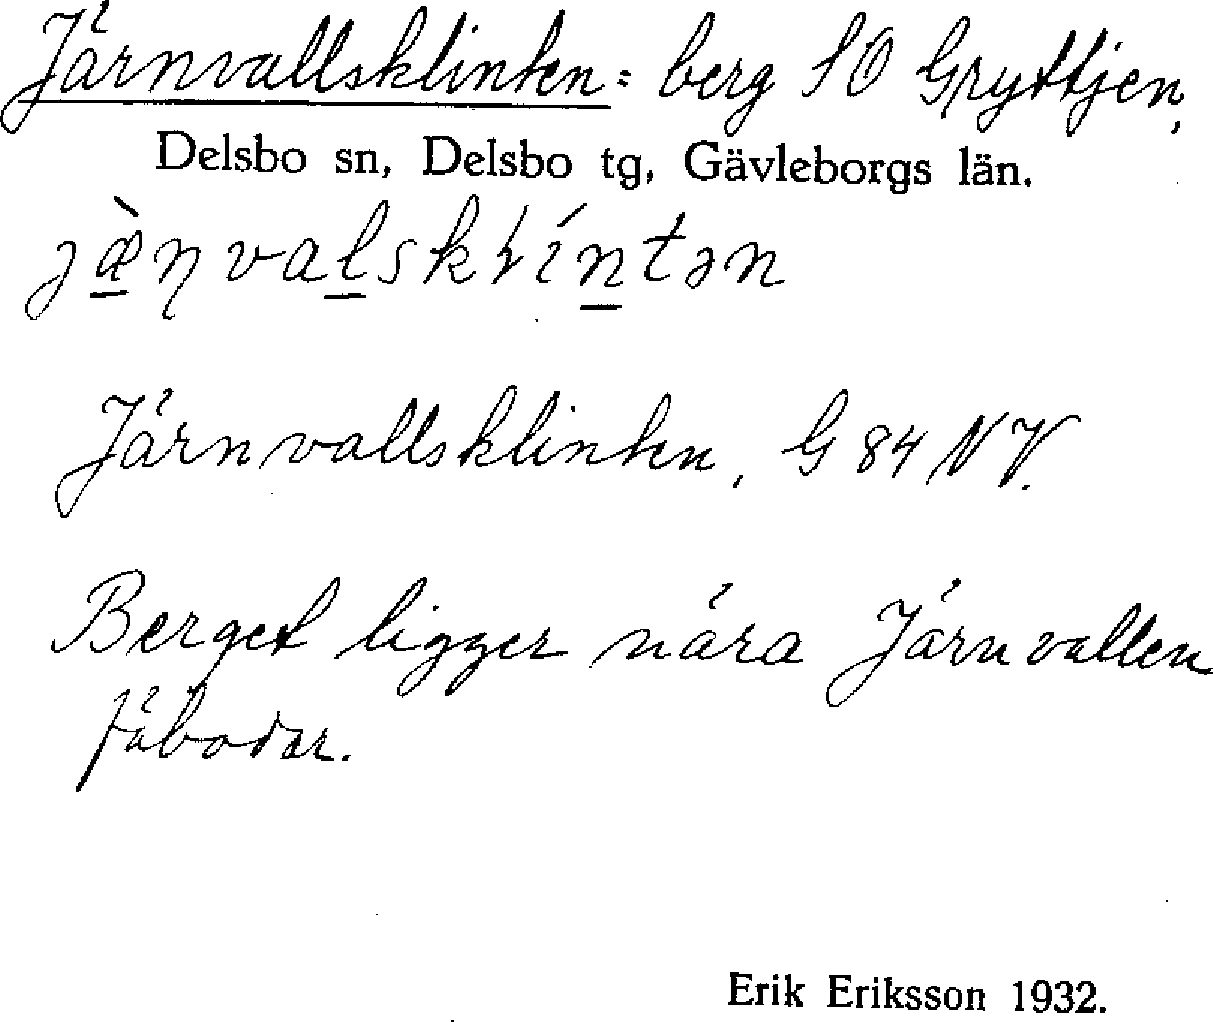 Järnvallsklinten: berg SO Gryttjen,
Delsbo sn, Delsbo tg, Gävleborgs län.
jæ̠̀ŋval̠skłín̠tən
Järnvallsklinten, G 84 NV.
Berget ligger nära Järnvallen
fäbodar.
Erik Eriksson 1932.